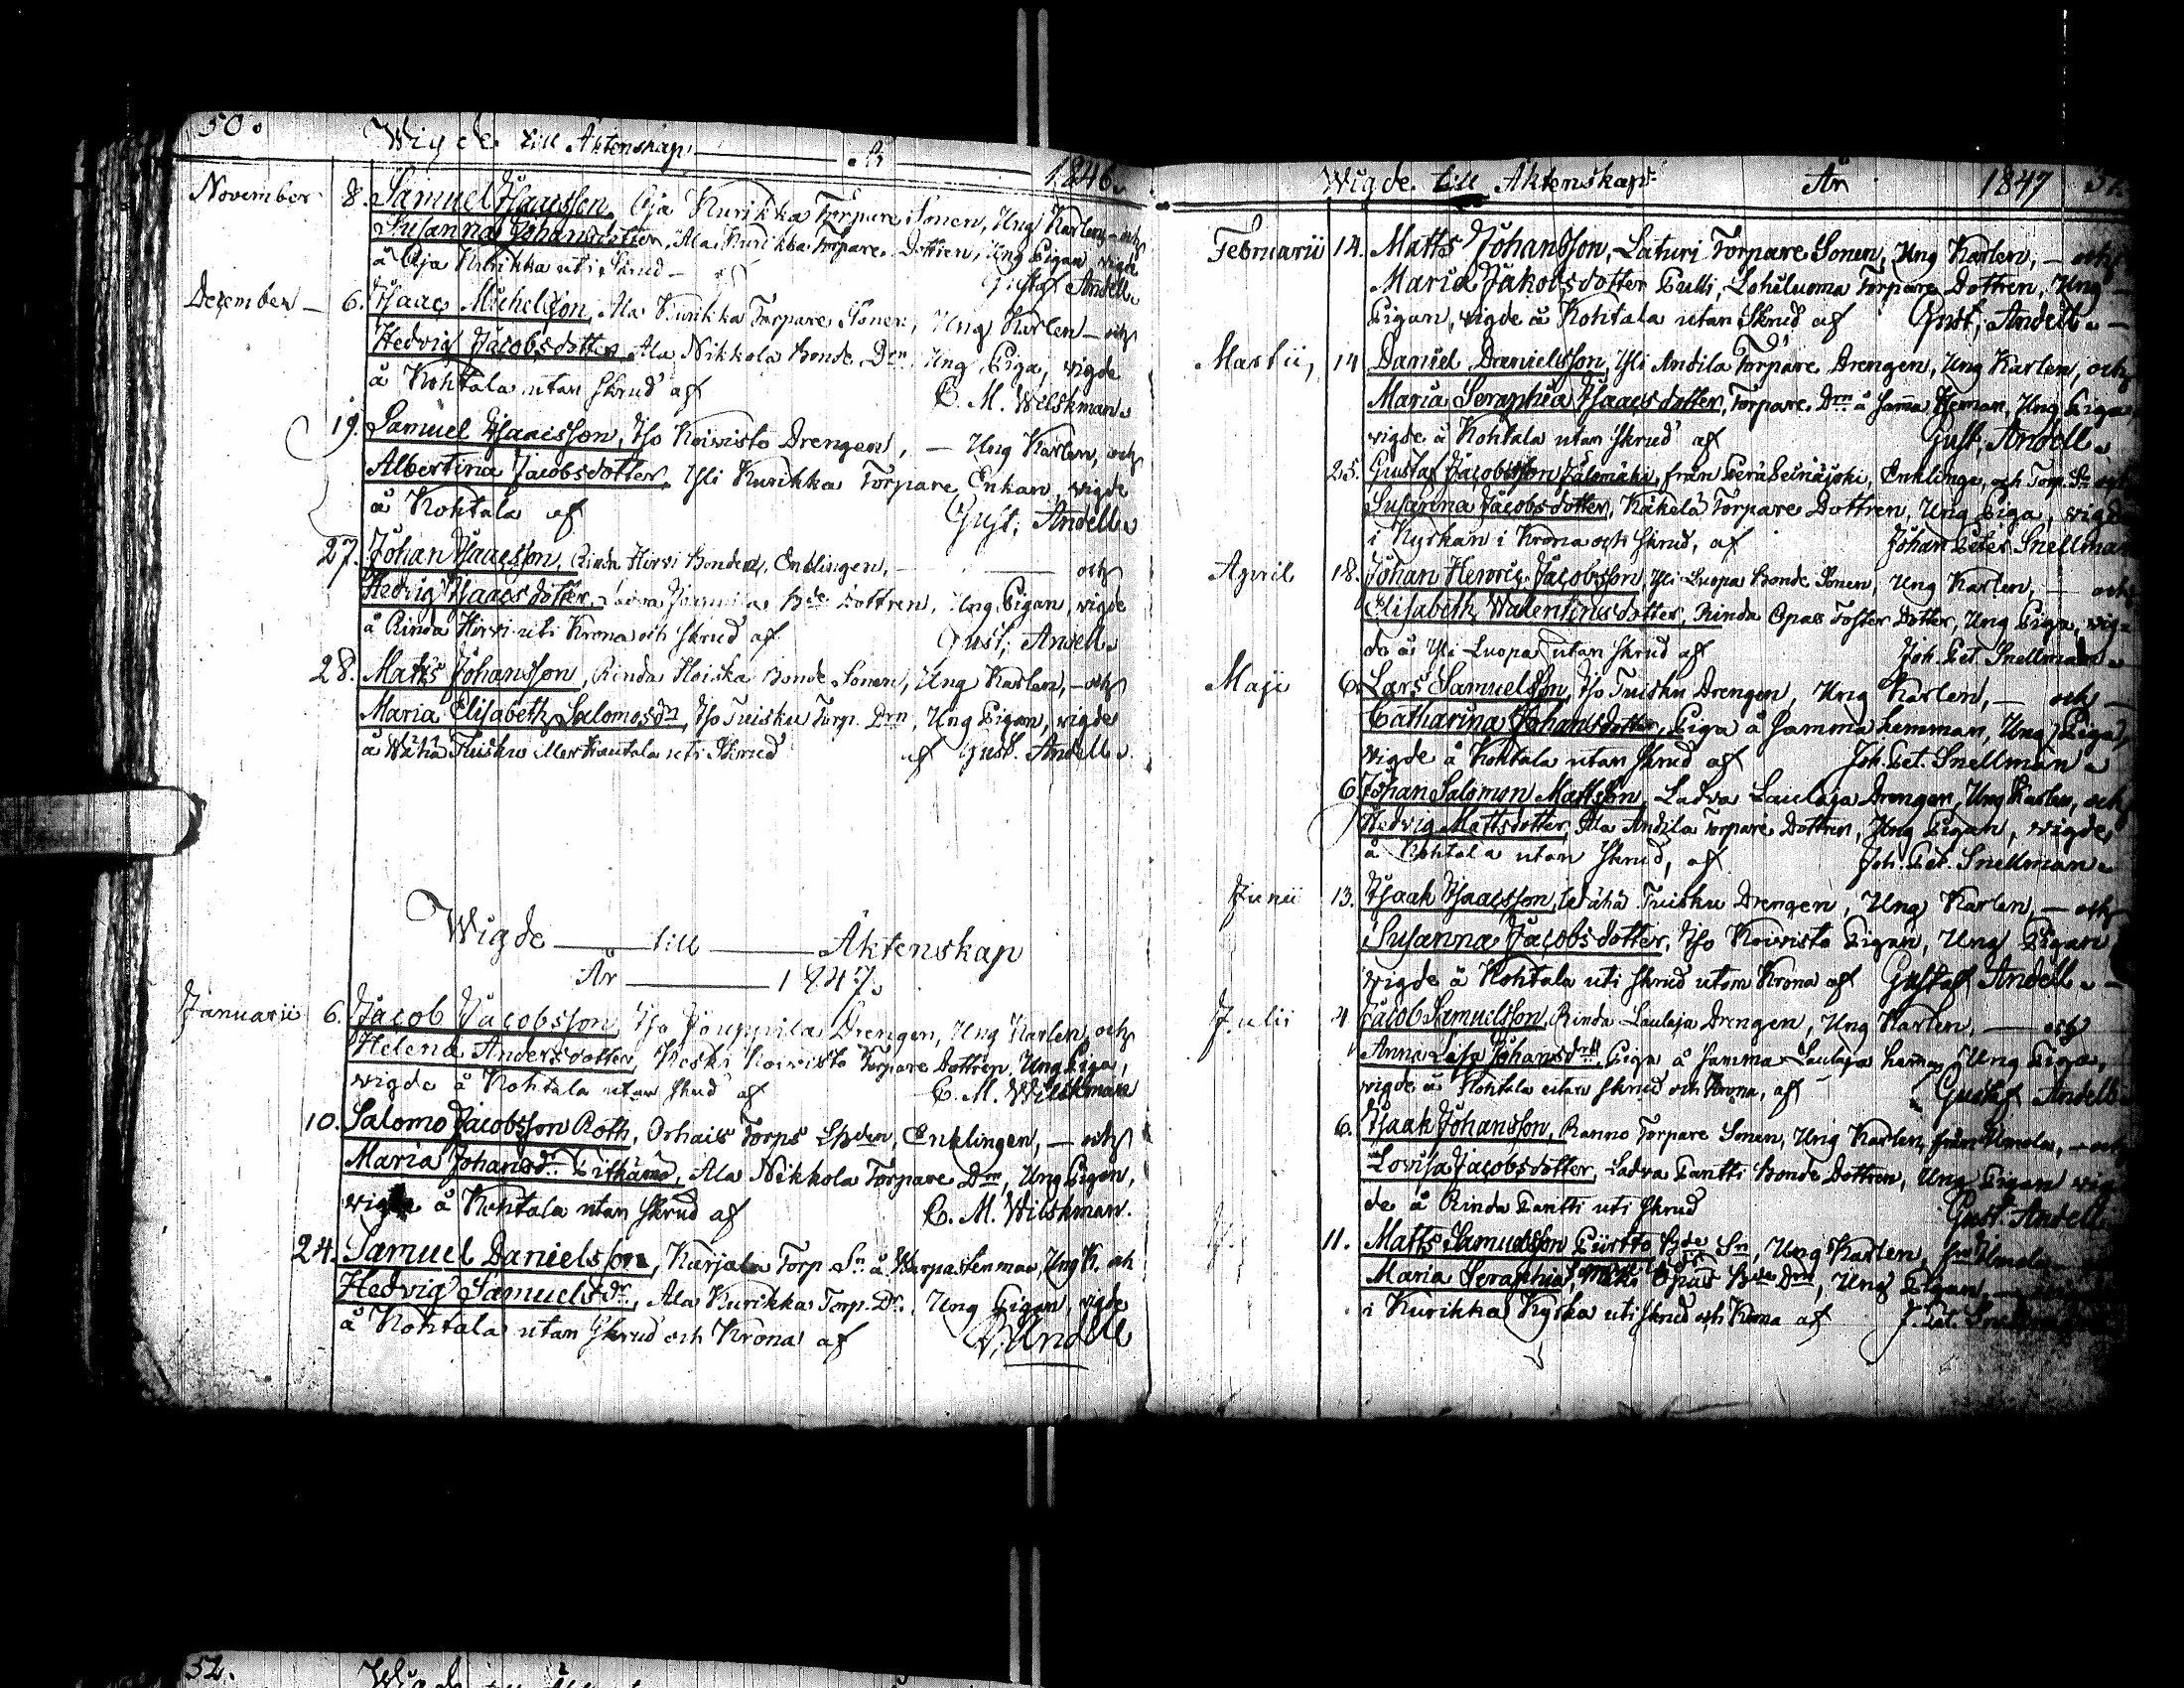 50.
Wigde till Äktenskap År 1846.
November 8. Samuel Isaacsson, Oja Kurikka Torpare Sonen, Ung Karlen, och
Susanna Johansdotter, Ala Kurikka Torpare Dottren, Ung Pigan, vigde
å Oja Kurikka uti Skrud — af Gustaf Andell.
December — 6. Isaac Michelsson, Ala Kurikka Torpare Sonen, Ung Karlen — och
Hedvig Jacobsdotter Ala Nikkola Bonde Drn, Ung Piga, vigde
å Kohtala utan skrud af C. M. Wilskman.
19. Samuel Isaacsson, Iso Koivisto Drengen, — Ung Karlen, och
Albertina Jacobsdotter, Yli Kurikka Torpare Enkan, vigde
å Kohtala af Gust; Andell.
27. Johan Isaacsson, Rinda Hirvi Bonden, Enklingen, — och
Hedvig Isaacsdotter, Dottren, Ung Pigan, vigde
å Rinda Hirvi uti Krona och skrud af Gust; Andell.
28. Matts Johansson, Rinda Hoiska Bonde Sonen, Ung Karlen, — och
Maria Elisabeth Salomosdn, Iso Tuisku Torp. Drn, Ung Pigan, vigde
å Wähä Tuisku uti Skrud af Gust. Andell.
Wigde — till — Äktenskap
År — 1847.
Januarii 6. Jacob Jacobsson, Iso Jouppila Drengen, Ung Karlen, och
Helena Andersdotter, Keski Koivisto Torpare Dottren, Ung Piga,
vigde å Kohtala utan skrud af C. M. Wilskman
10. Salomo Jacobsson Roth, Orhais Torps Enklingen, — och
Maria Johansdr, Ala Nikkola Torpare Drn, Ung Pigan,
vigde å Kohtala utan skrud af C. M. Wilskman.
24. Samuel Danielsson, Karjala Torp. Sn å Warpastenmaa, Ung K. och
Hedvig Samuelsdr, Ala Kurikka Torp. Dr., Ung Pigan, vigde
å Kohtala utan Skrud och Krona af G. Andell
Wigde till Äktenskap År 1847 51.
Februarii 14. Matts Johansson, Laturi Torpare Sonen, Ung Karlen, — och
Maria Jakobsdotter Pulli, Lohiluoma Torpare Dottren, Ung —
Pigan, vigde å Kohtala utan Skrud af Gust; Andell. —
Martii, 14 Daniel Danielsson, Yli Andila Torpare Drengen, Ung Karlen, och
Maria Seraphia Isaacsdotter, Torpare Drn å samma Heman, Ung Piga,
vigde å Kohtala utan skrud af Gust; Andell.
25. Gustaf Jacobsson Jälomäki, från Perä Seinäjoki, Enklinge, och Torp. Sn och
Susanna Jacobsdotter, Käkelä Torpare Dottren, Ung Piga, vigde
i Kyrkan i Krona och skrud, af Johan Peter Snellman
April 18. Johan Henric Jacobsson, Yli Luopa Bonde Sonen, Ung Karlen, — och
Elisabeth Walentinsdotter, Rinda Opas Foster Dotter, Ung Piga, vig-
de å Yli Luopa utan skrud af Joh. Pet. Snellman.
Maji 6. Lars Samuelsson, Iso Tuisku Drengen, Ung Karlen, — och —
Catharina Johansdotter, Piga å samma hemman, Ung Piga,
vigde å Kohtala utan skrud af Joh. Pet. Snellman.
6 Johan Salomon Mattsson, Ladva Laulaja Drengen, Ung Karlen, och
Hedvig Mattsdotter, Ala Andila Torpare Dottren, Ung Pigan, vigde,
å Kohtala utan skrud, af Joh. Pet. Snellman.
Junii 13. Isaak Isaacsson, Wähä Tuisku Drengen, Ung Karlen, — och
Susanna Jacobsdotter, Iso Koivisto Pigan, Ung Pigan
vigde å Kohtala uti skrud utom Krona af Gustaf Andell. —
Julii 4 Jacob Samuelsson, Rinda Laulaja Drengen, Ung Karlen, — och
Anna Lisa Johansdr, Piga å samma Laulaja heman, Ung Piga,
vigde å Kohtala utan skrud och Krona, af Gustaf Andell.
6. Isaak Johansson, Ranno Torpare Sonen, Ung Karlen, från Ilmola, — och
Lovisa Jacobsdotter, Ladva Pantti Bonde Dottren, Ung Pigan vig-
de å Rinda Pantti uti skrud Gust. Andell
11. Matts Samuelsson Piirtto Bde Sn, Ung Karlen, frn Ilmola
Maria Seraphia, Opas Bde Drn, Ung Pigan,
i Kurikka Kyrka uti skrud och Krona af J. Pet. Snellman
52.